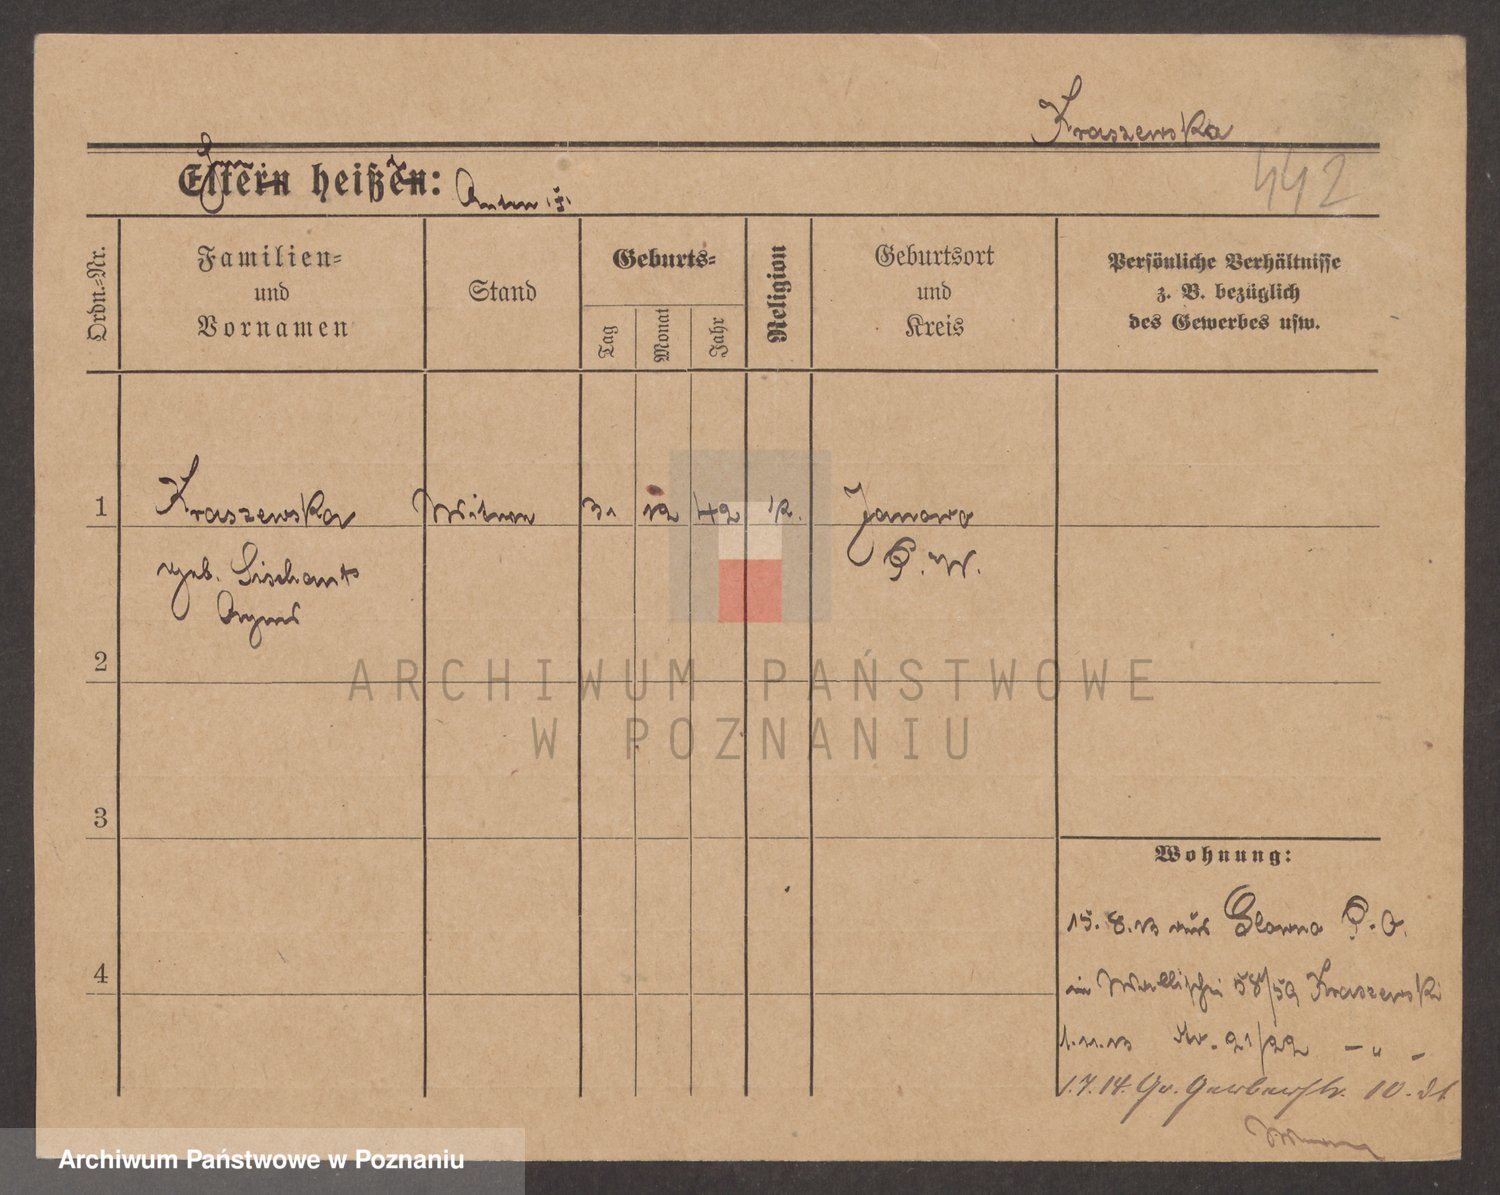 Kraszewska
442
Eltern heißen:
Ordn.-Nr.
Familien-
und
Vornamen
Stand
Geburts-
Tag
Monat
Jahr
Religion
Geburtsort
und
Kreis
Persönliche Verhältnisse
z. B. bezüglich
des Gewerbes usw.
1 Kraszewska Witwe 31 12 42 k. Janowo
geb. P. W.
Agnes
2
ARCHIWUM PAŃSTWOWE
W POZNANIU
3
Wohnung:
15. 8. 13 aus Glowno P. O.
4
in Wallischei 58/59 Kraszewski
1. 11. 13 21/22 - " -
1. 7. 14. Gr. Gerberstr. 10.
Archiwum Państwowe w Poznaniu